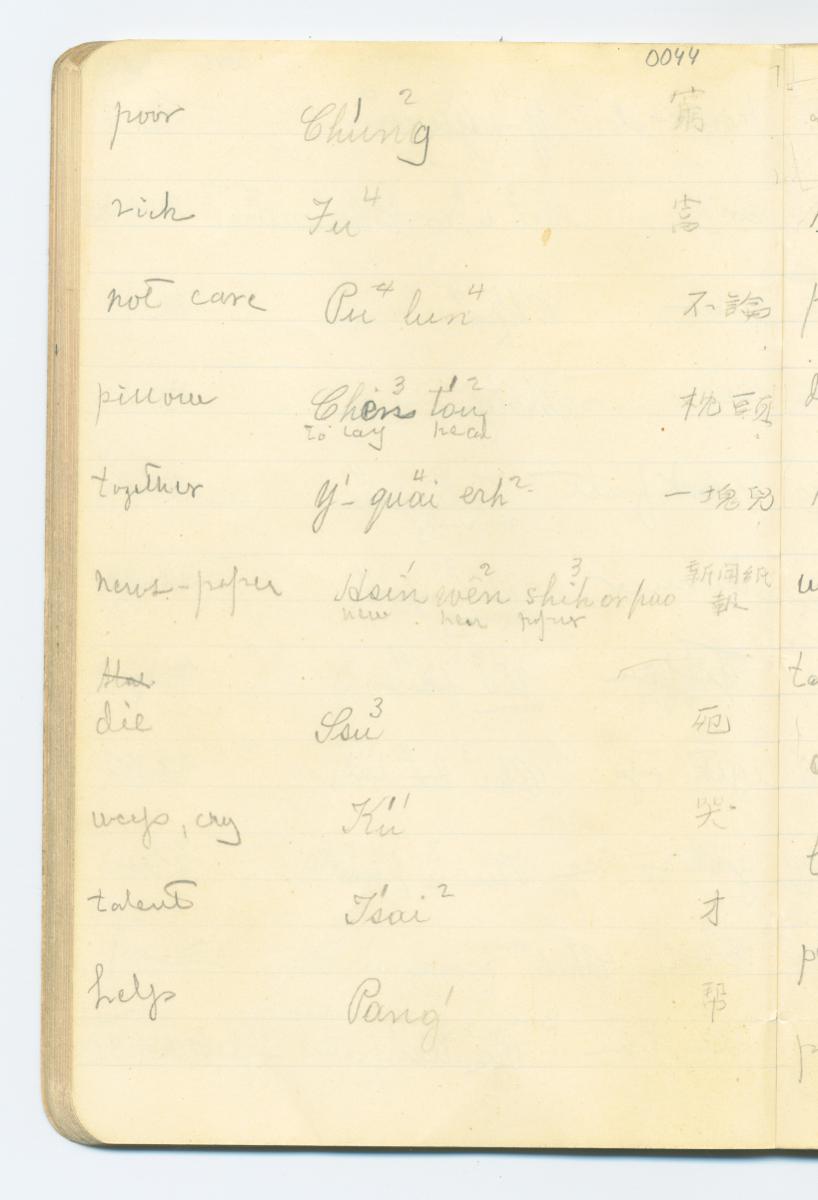 0044
poor Ch'ung² 窮
rich Fu⁴ 富
not care Pu⁴ lun⁴ 不論
pillow Chên³ t'ou² 枕頭
to lay head
together Yi¹- quai⁴ erh² 一塊兒
news-paper Hsin¹ wên² shih³ or pao 新闻紙
new hear paper 報
die Ssu³ 死
weep, cry K'u¹ 哭
talent Ts'ai² 才
help Pang¹ 帮